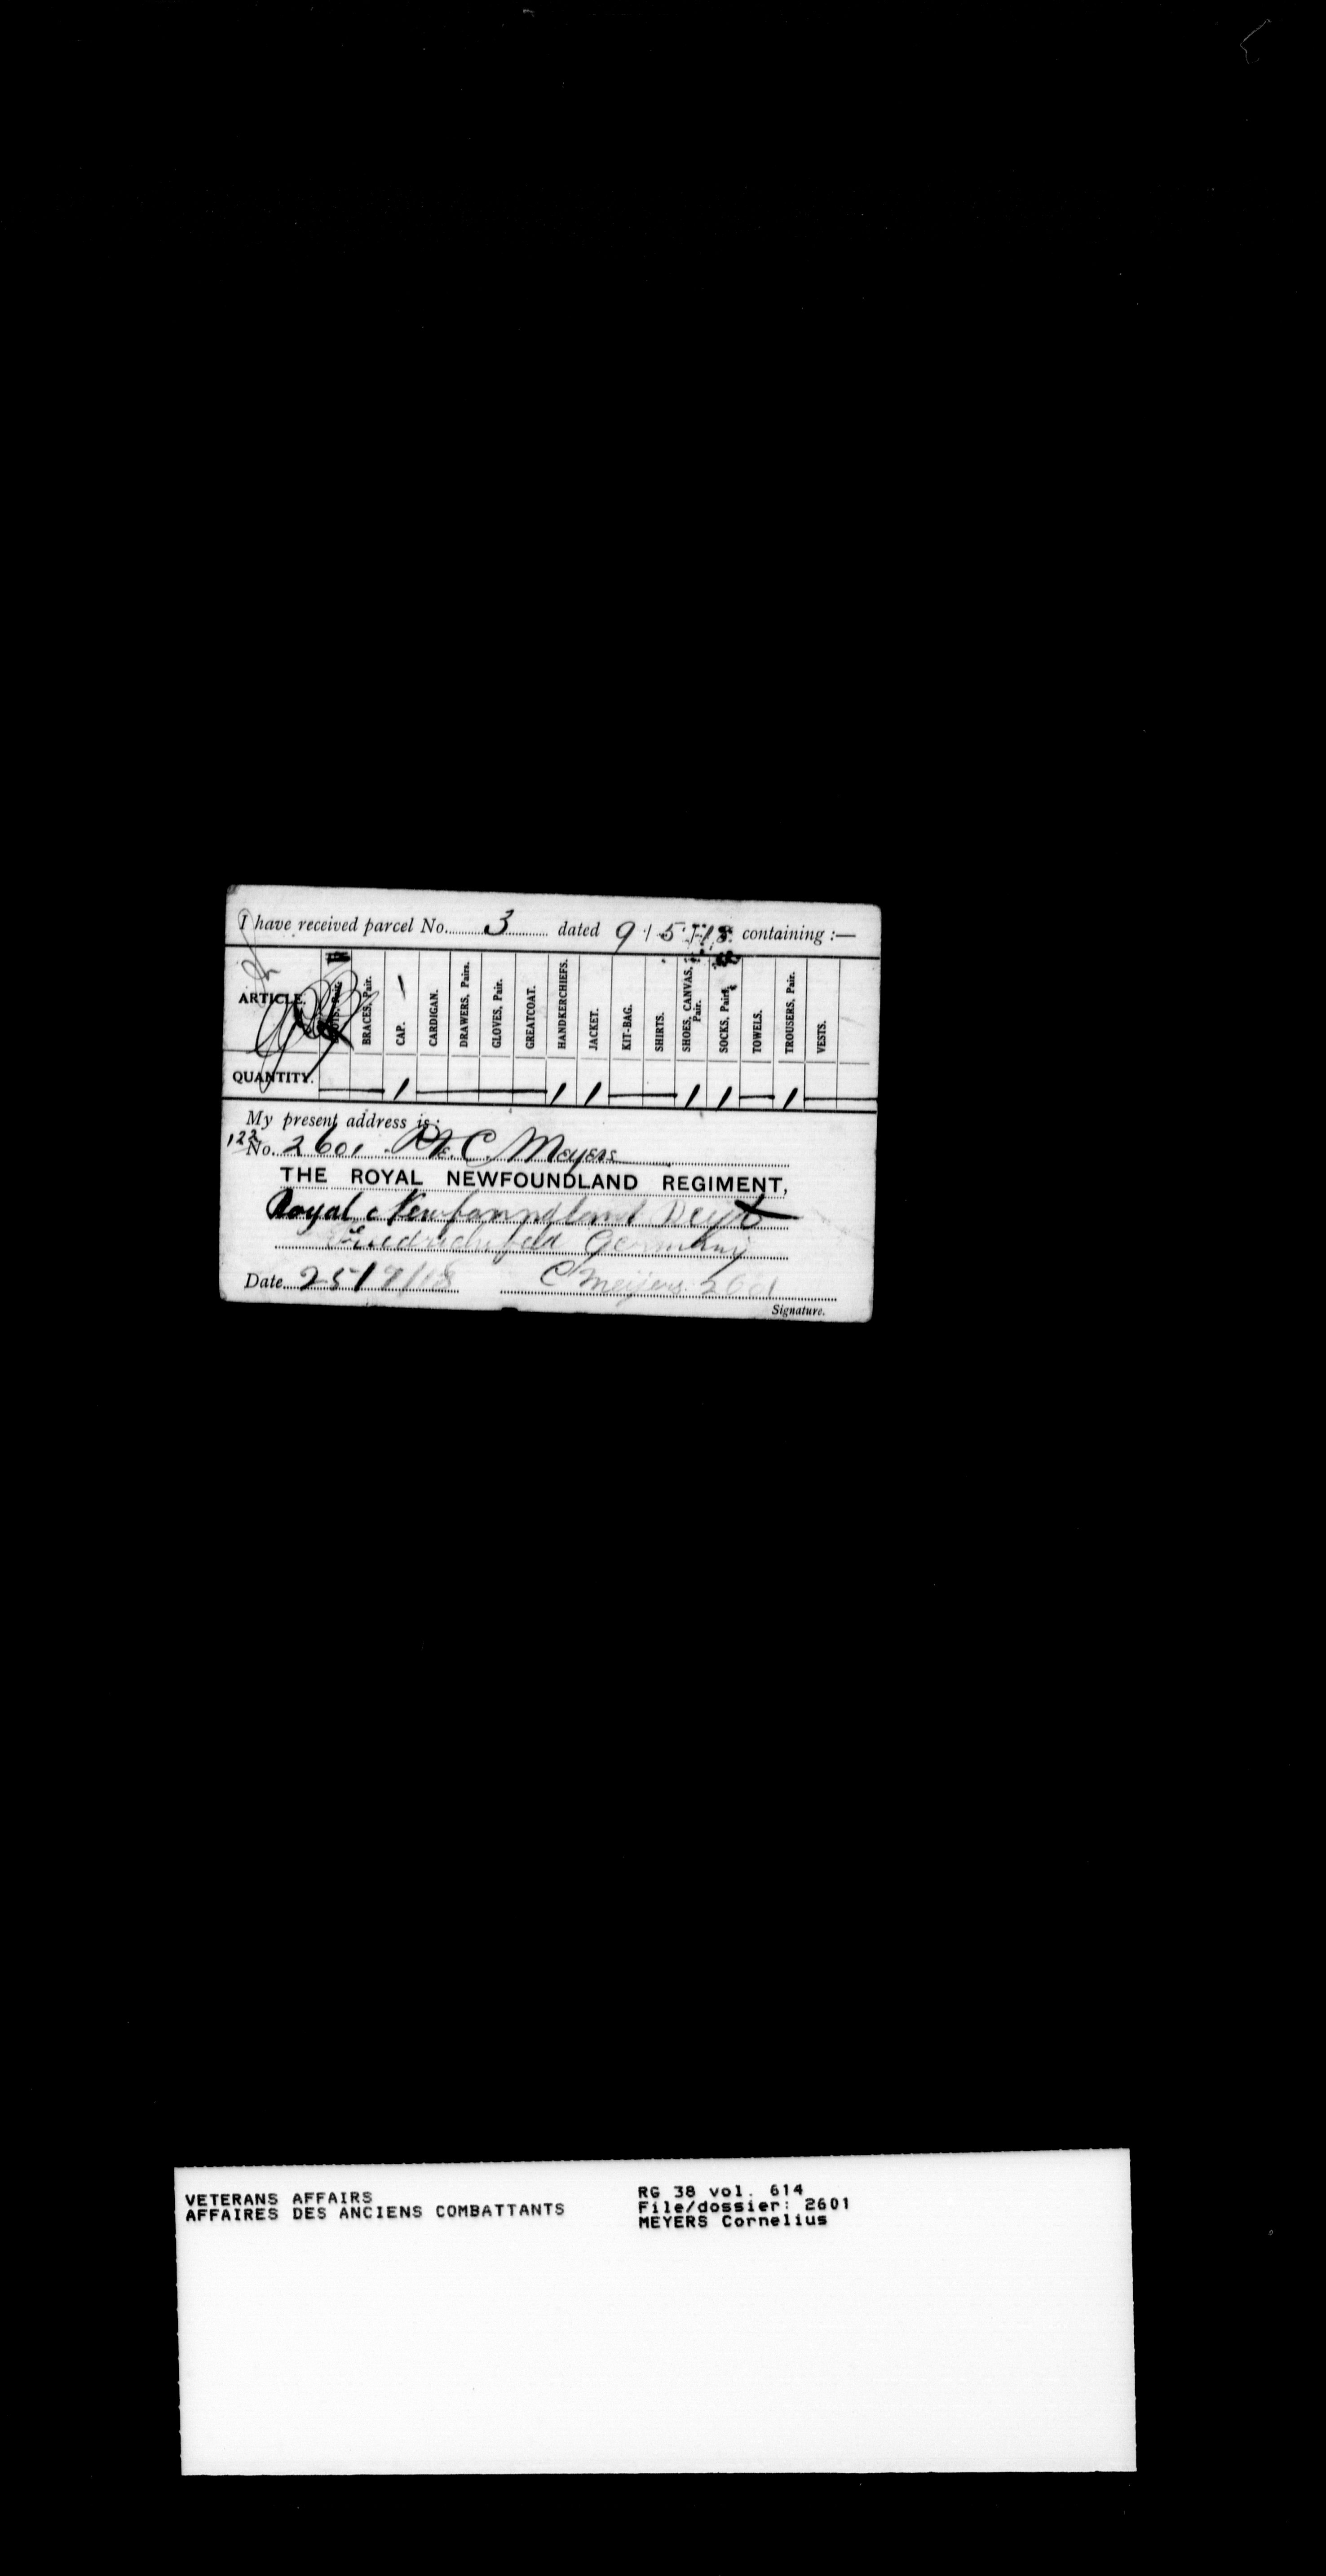 I have received parcel No. 3 dated 9/5/18 containing :—
ARTICLE. BOOTS, Pair. BRACES, Pair. CAP. CARDIGAN. DRAWERS, Pairs. GLOVES, Pair. GREATCOAT. HANDKERCHIEFS. JACKET. KIT-BAG. SHIRTS. SHOES, CANVAS, Pair. SOCKS, Pairs. TOWELS. TROUSERS, Pair. VESTS.
QUANTITY. — 1 — 1 1 — 1 1 — 1 —
My present address is:
122
No. 2601. Pte. C. Meyers
THE ROYAL NEWFOUNDLAND REGIMENT,
Royal Newfoundland
Friedrichsfeld Germany
Date 25/7/18 C Meyers. 2601
Signature.
VETERANS AFFAIRS
AFFAIRES DES ANCIENS COMBATTANTS
RG 38 vol. 614
File/dossier: 2601
MEYERS Cornelius